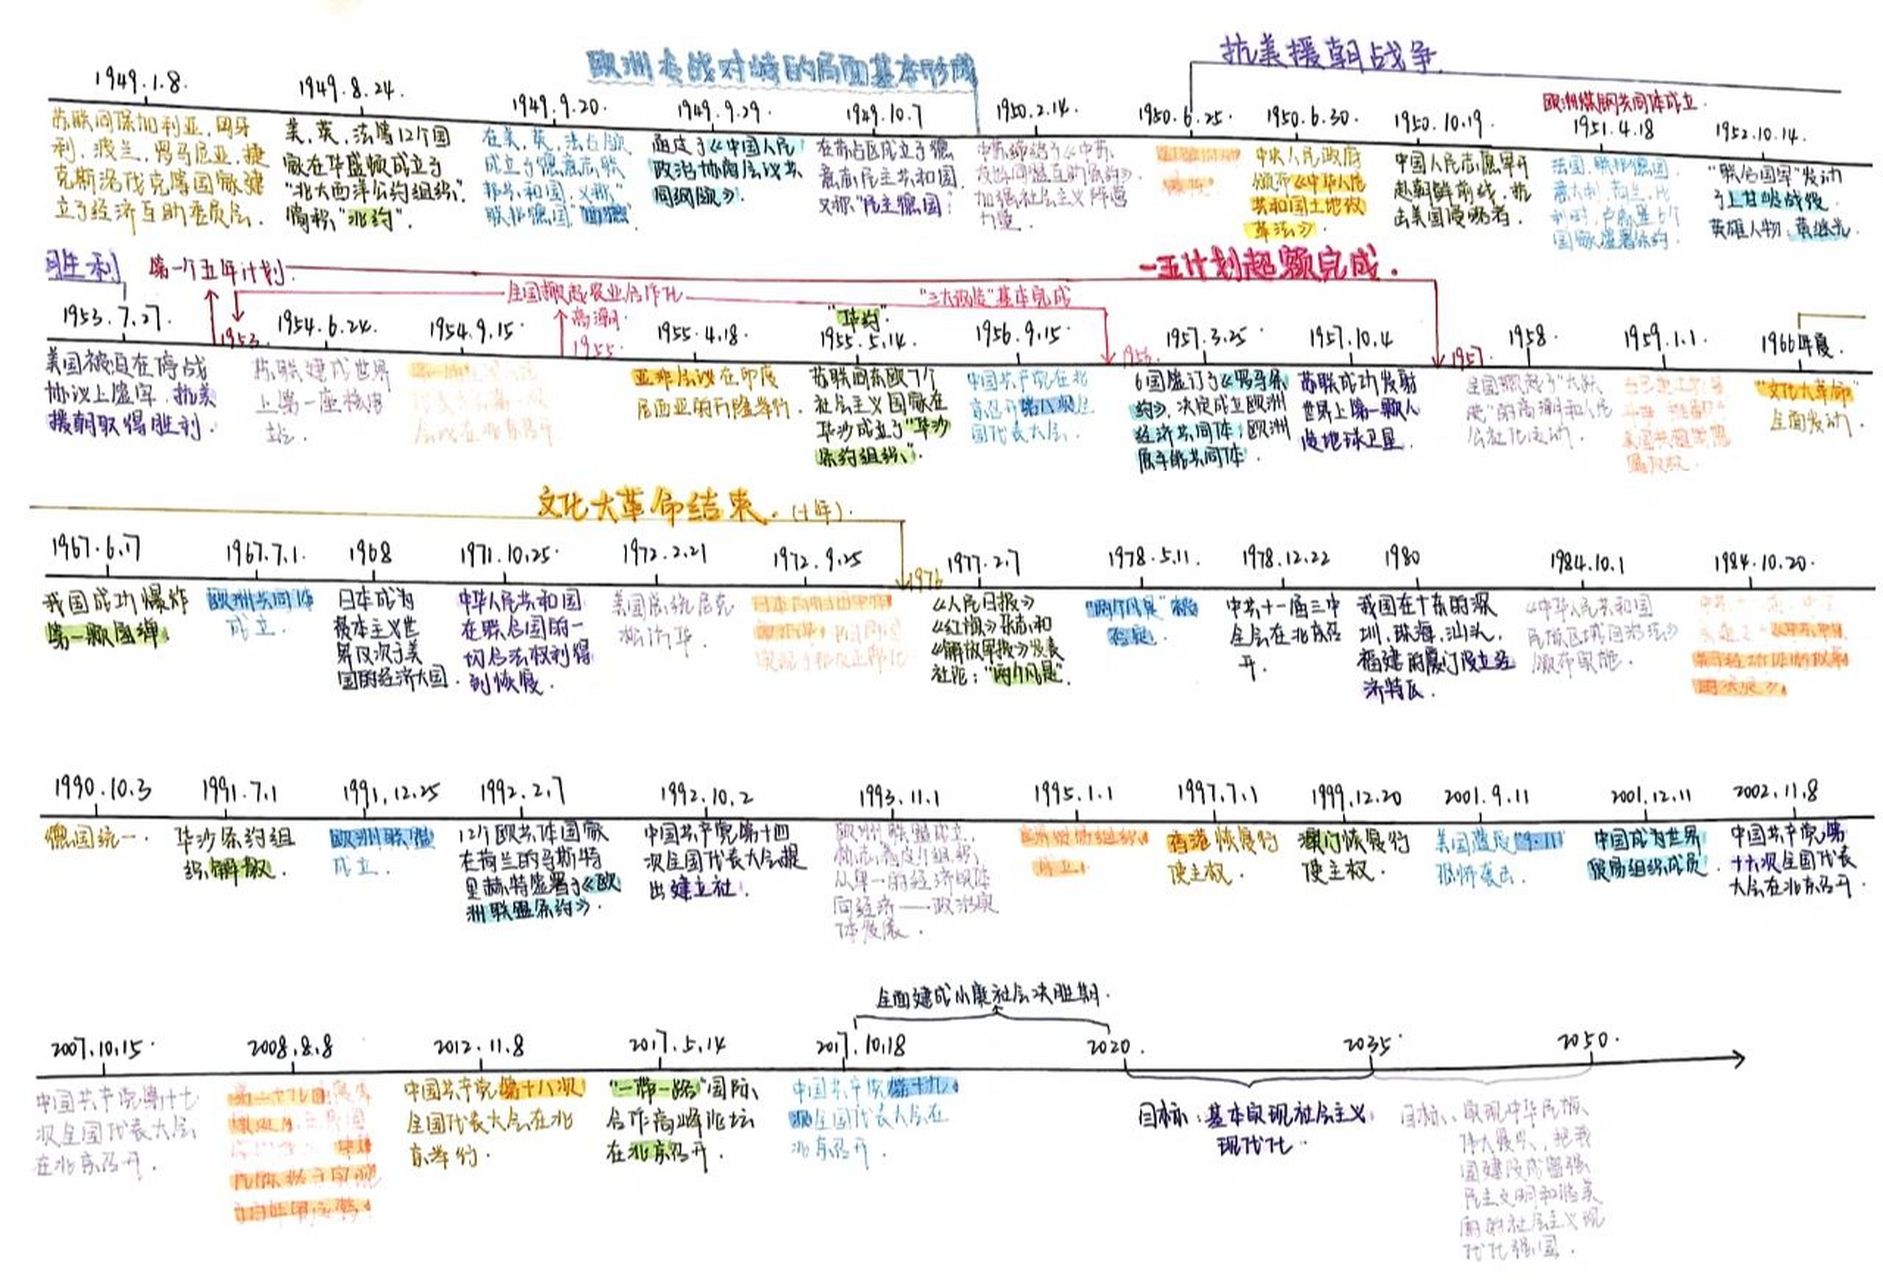 欧洲冷战对峙的局面基本形成
抗美援朝战争
1949.1.8.
1949.8.24.
1949.9.20.
1949.9.29.
1949.10.7
1950.2.14.
1950.6.25.
1950.6.30.
1950.10.19.
欧洲煤钢共同体成立.
1951.4.18
1952.10.14.
苏联同保加利亚、匈牙
利、波兰、罗马尼亚、捷
克斯洛伐克等国家建
立了经济互助委员会.
美、英、法等12个国
家在华盛顿成立了
"北大西洋公约组织".
简称"北约".
在美、英、法占领区
成立了德意志联
邦共和国,又称"
联邦德国","西德"
通过了《中国人民
政治协商会议共
同纲领》.
在苏占区成立了德
意志民主共和国.
又称"民主德国".
中苏缔结了《中苏
友好同盟互助条约》.
加强社会主义阵营
力量.
中央人民政府
颁布《中华人民
共和国土地改
革法》.
中国人民志愿军开
赴朝鲜前线,抗
击美国侵略者.
法国、联邦德国、
意大利、荷兰、比
利时、卢森堡6个
国家签署条约.
"联合国军"发动
了上甘岭战役.
英雄人物:黄继光.
胜利
第一个五年计划.
一五计划超额完成.
全国掀起农业合作化
高潮.
"三大改造"基本完成
1953.7.27.
1953.
1954.6.24.
1954.9.15.
1955.
1955.4.18.
"华约".
1955.5.14.
1956.9.15.
1956.
1957.3.25.
1957.10.4
1957.
1958.
1959.1.1.
1966年夏.
美国被迫在停战
协议上签字,抗美
援朝取得胜利.
苏联建成世界
上第一座核电
站.
亚非会议在印度
尼西亚的万隆举行.
苏联同东欧7个
社会主义国家在
华沙成立了"华沙
条约组织".
中国共产党在北
京召开第八次全
国代表大会.
6国签订了《罗马条
约》,决定成立欧洲
经济共同体,欧洲
原子能共同体.
苏联成功发射
世界上第一颗人
造地球卫星.
全国掀起了"大跃
进"的高潮和人民
公社化运动.
"文化大革命"
全面发动.
文化大革命结束.(十年).
1967.6.17
1967.7.1.
1968
1971.10.25.
1972.2.21
1972.9.25
1976
1977.2.7
1978.5.11.
1978.12.22
1980
1984.10.1
1984.10.20.
我国成功爆炸
第一颗氢弹.
欧洲共同体
成立.
日本成为
资本主义世
界仅次于美
国的经济大国.
中华人民共和国
在联合国的一
切合法权利得
到恢复.
美国总统尼克
松访华.
《人民日报》
《红旗》杂志和
《解放军报》发表
社论:"两个凡是".
"两个凡是"被
否定.
中共十一届三中
全会在北京召
开.
我国在广东的深
圳、珠海、汕头、
福建的厦门设立经
济特区.
《中华人民共和国
民族区域自治法》
颁布实施.
1990.10.3
1991.7.1
1991.12.25
1992.2.7
1992.10.2
1993.11.1
1995.1.1
1997.7.1
1999.12.20
2001.9.11
2001.12.11
2002.11.8
德国统一.
华沙条约组
织解散.
欧洲联盟
成立.
12个欧共体国家
在荷兰的马斯特
里赫特签署了《欧
洲联盟条约》.
中国共产党第十四
次全国代表大会提
出建立社.
欧洲联盟成立,
标志着这个组织,
从单一的经济实体
向经济——政治实
体发展.
世界贸易组织
成立.
香港恢复行
使主权.
澳门恢复行
使主权.
美国遭受"9·11"
恐怖袭击.
中国成为世界
贸易组织成员.
中国共产党第
十六次全国代表
大会在北京召开.
全面建成小康社会决胜期.
2007.10.15.
2008.8.8
2012.11.8
2017.5.14
2017.10.18
2020.
2035.
2050.
中国共产党第十七
次全国代表大会
在北京召开.
中国共产党第十八次
全国代表大会在北
京举行.
"一带一路"国际
合作高峰论坛
在北京召开.
中国共产党第十九
次全国代表大会在
北京召开.
目标:基本实现社会主义
现代化.
目标:实现中华民族
伟大复兴,把我
国建设成富强
民主文明和谐美
丽的社会主义现
代化强国.